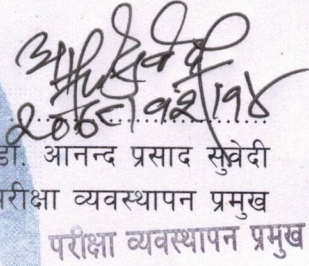 २०७८।१२।१४
डा. आनन्द प्रसाद सुवेदी
परीक्षा व्यवस्थापन प्रमुख
परीक्षा व्यवस्थापन प्रमुख